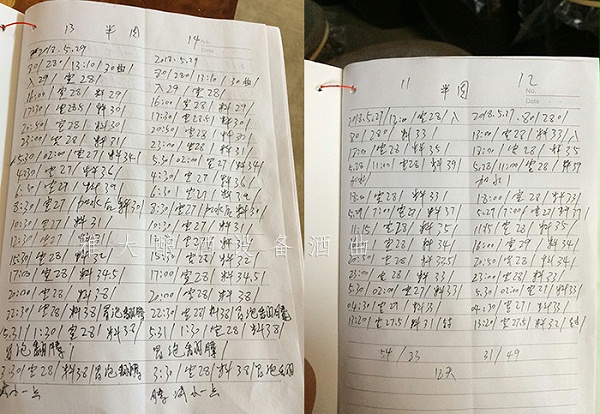 13 半肉 14
2018.5.29
80/28/13:10/30曲/
入29/室28/
16:00/室28/料29/
17:30/室28.5/料30/
20:50/室28/料30/
23:00/室28/料31/
5.30/02:00/室27/料34/
4:30/室27/料36/
6:30/室27/料39/
8:30/室27/加水后料30/
10:30/室27/料31/
15:30/室28/料32/
17:00/室28/料34.5/
20:00/室28/料38/
22:30/室28/料38/冒泡翻腾
5.31/1:30/室28/料38/
冒泡翻腾/
3:30/室28/料38/冒泡翻腾
减小一点
2018.5.29
80/280/13:10/30曲/
入29/室28/
16:00/室28/料29/
17:30/室28.5/料30/
20:50/室28/料30/
23:00/室28/料31/
5.30/02:00/室27/料34/
4:30/室27/料36/
6:30/室27/料39/
8:30/室27/加水后料30/
10:30/室27/料31/
15:30/室28/料32/
17:00/室28/料34.5/
20:00/室28/料38
22:30/室28/料38/冒泡翻腾
5.31/1:30/室28/料38/
冒泡翻腾/
3:30/室28/料38/冒泡翻
腾减小一点
11 半肉 12
No.
Date
2018.5.27/13:00/室28/入
80/280/料33/
18:00/室28/料35/
5.28/11:00/室28/料39/
加水/
18:00/室28/料33/
5.29/7:00/室27/料37/
11:15/室28/料35/
16:00/室29/料34/
20:50/室28/料33.5/
23:00/室28/料33/
5.30/02:00/室27/料33/
04:30/室27/料31/
13:20/室27.5/料31/转
54/33
2018.5.27/80/280/
13:00/室28/料33/入
18:00/室28/料35
5.28/11:00/室28/料39
加水/
18:00/室28/料33/
5.29/7:00/室27/料37/
11:15/室28/料35/
16:00/室29/料34/
20:50/室28/料34/
23:00/室28/料33/
5.30/02:00/室27/料33/
04:30/室27/料31/
13:20/室27.5/料32/转/
31/49
雅大酿酒设备酒曲